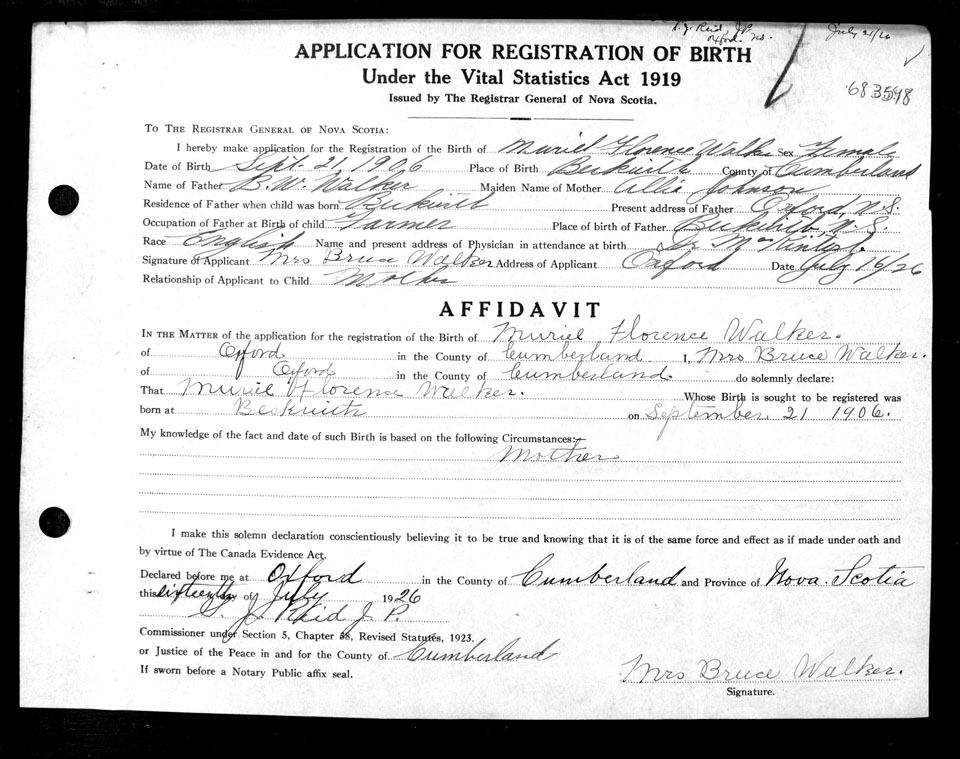 G. J. Reid, J.P. July 21/26
Oxford. N.S.
APPLICATION FOR REGISTRATION OF BIRTH
Under the Vital Statistics Act 1919
Issued by The Registrar General of Nova Scotia.
683598
TO THE REGISTRAR GENERAL OF NOVA SCOTIA:
I hereby make application for the Registration of the Birth of Muriel Florence Walker Sex Female
Date of Birth Sept. 21, 1906 Place of Birth County of Cumberland
Name of Father B. W. Walker Maiden Name of Mother Allie Johnson
Residence of Father when child was born Present address of Father Oxford, N.S.
Occupation of Father at Birth of child Farmer Place of birth of Father N.S.
Race English Name and present address of Physician in attendance at birth
Signature of Applicant Mrs Bruce Walker Address of Applicant Oxford Date July 16/26
Relationship of Applicant to Child Mother
AFFIDAVIT
IN THE MATTER of the application for the registration of the Birth of Muriel Florence Walker.
of Oxford in the County of Cumberland I, Mrs Bruce Walker.
of Oxford in the County of Cumberland. do solemnly declare:
That Muriel Florence Walker. Whose Birth is sought to be registered was
born at on September 21 1906.
My knowledge of the fact and date of such Birth is based on the following Circumstances:—
Mother
I make this solemn declaration conscientiously believing it to be true and knowing that it is of the same force and effect as if made under oath and
by virtue of The Canada Evidence Act.
Declared before me at Oxford in the County of Cumberland and Province of Nova Scotia
this sixteenth day of July 1926
G. J. Reid J. P.
Commissioner under Section 5, Chapter 38, Revised Statutes, 1923.
or Justice of the Peace in and for the County of Cumberland
If sworn before a Notary Public affix seal.
Mrs Bruce Walker.
Signature.